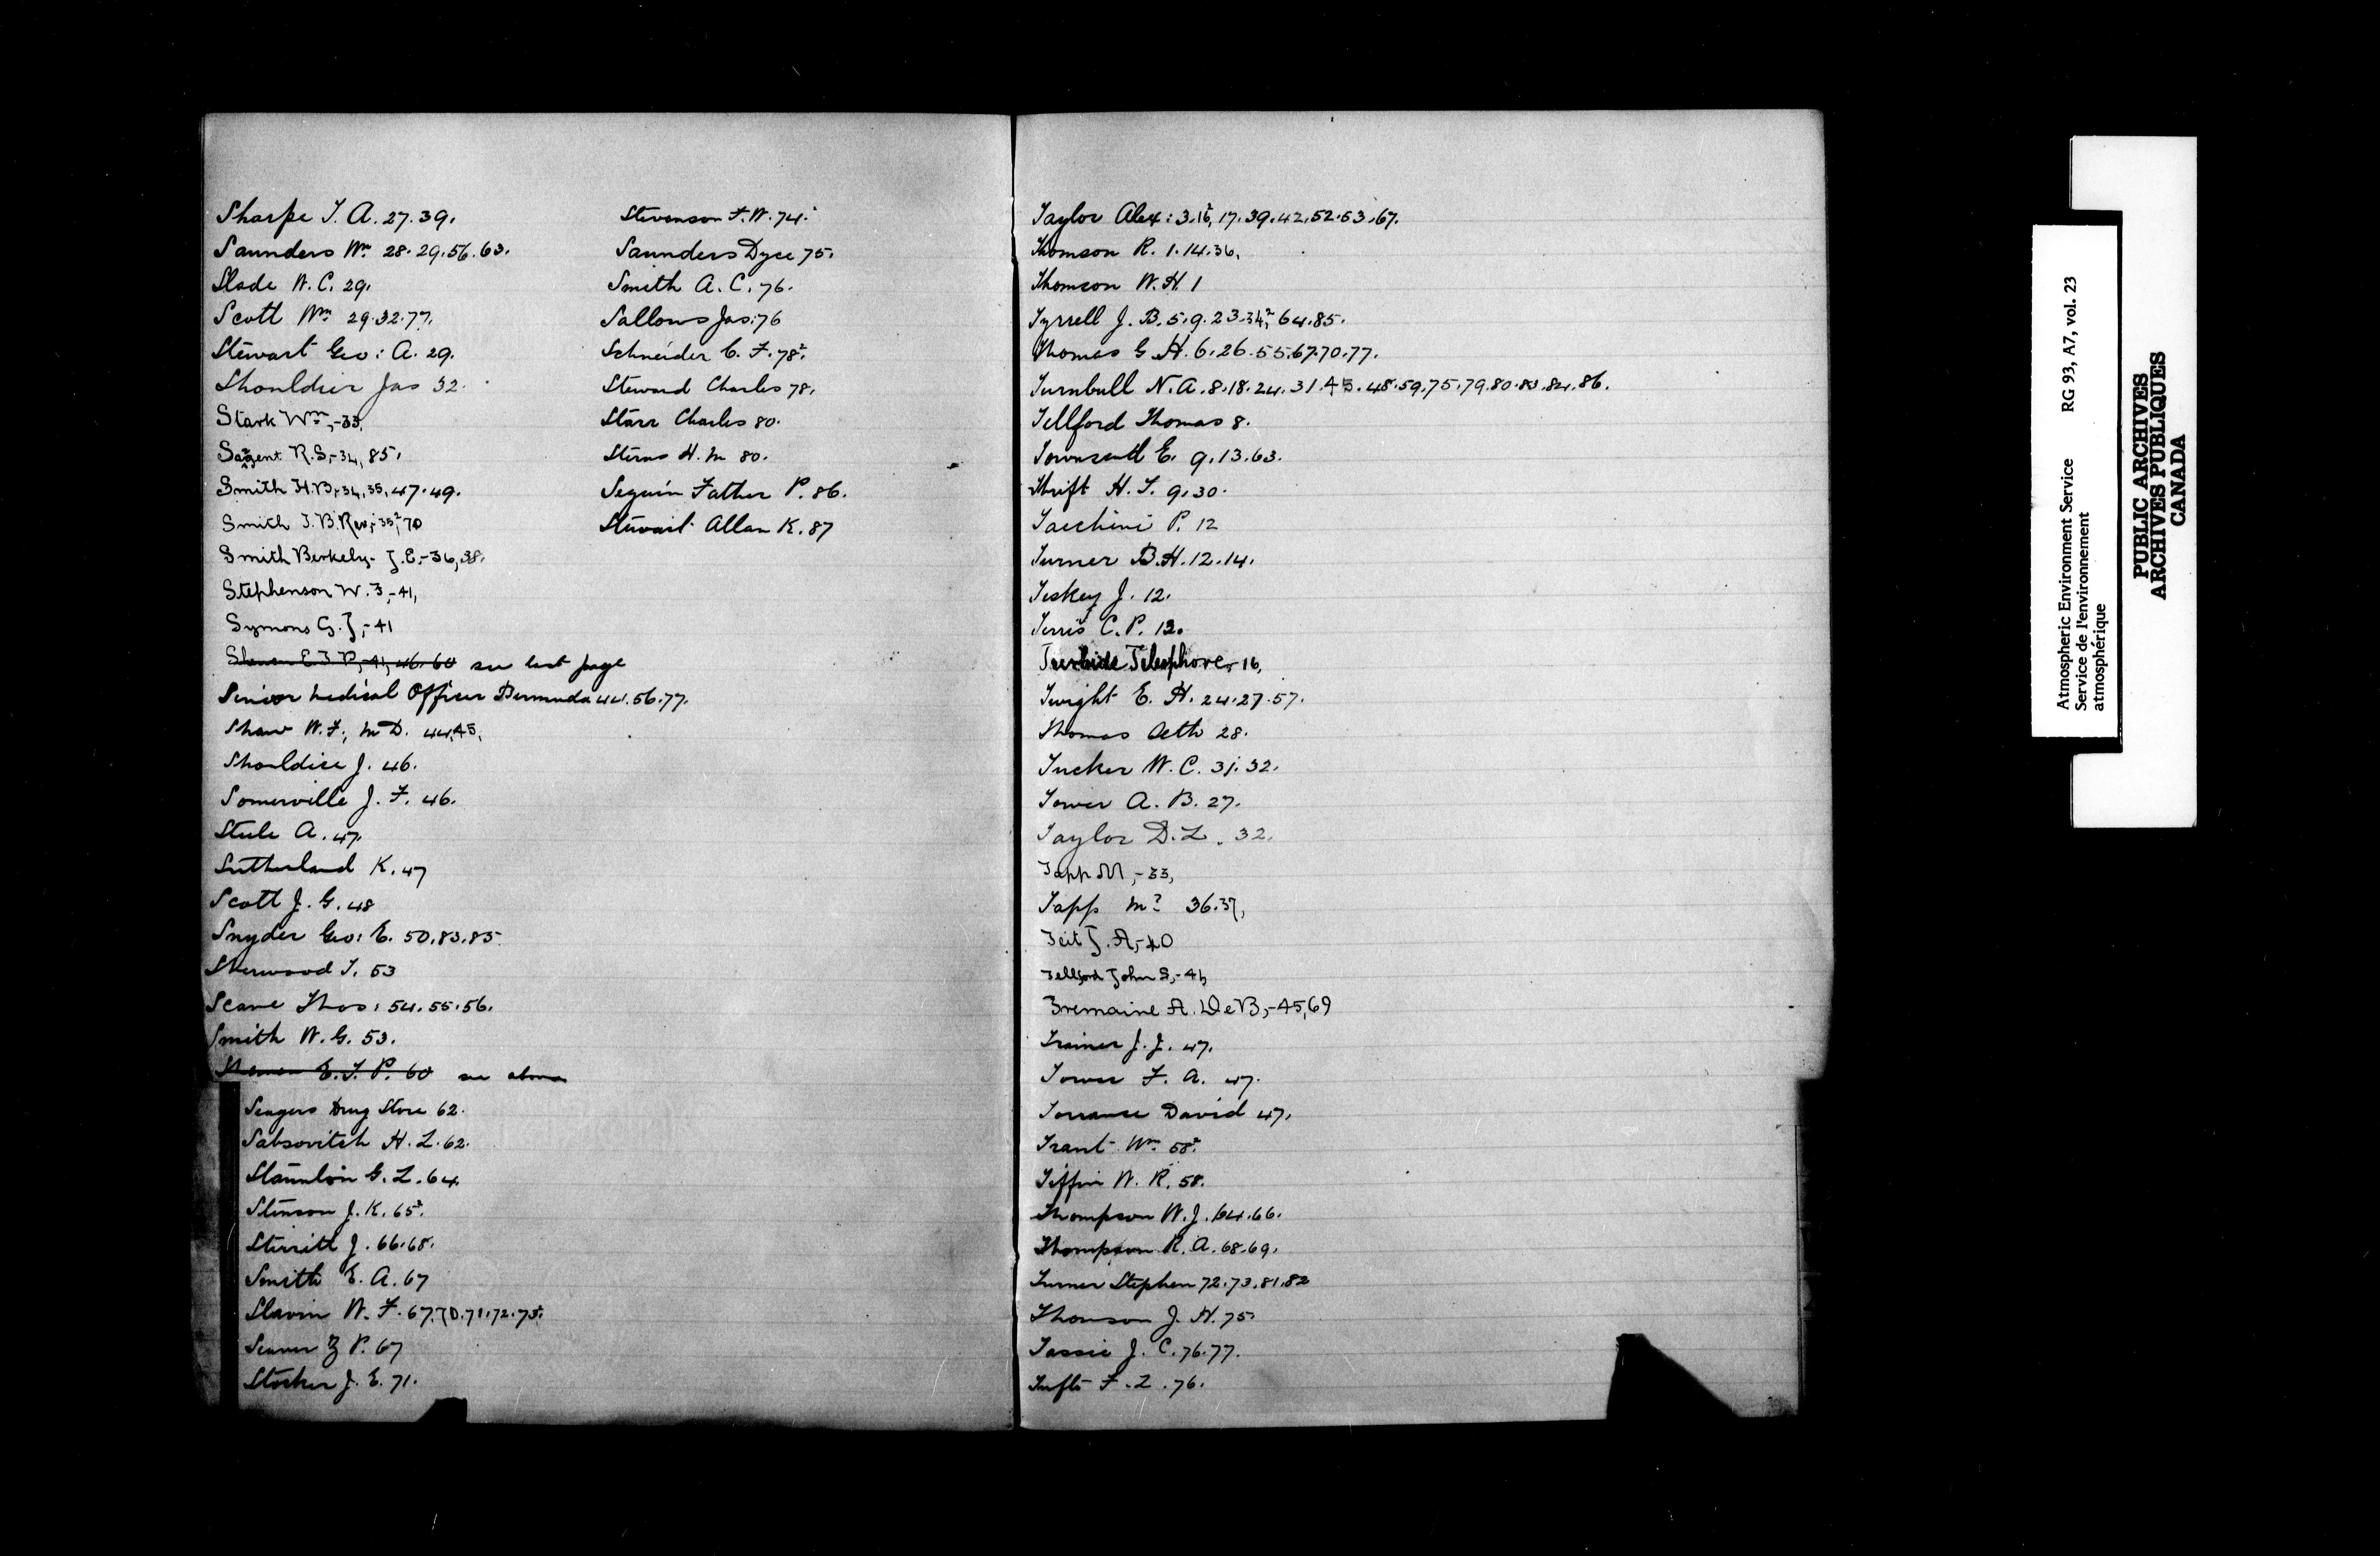 Sharpe T. A. 27. 39.
Saunders Wm 28. 29. 56. 63.
Slade W. C. 29.
Scott Wm 29. 32. 77.
Stewart Geo: A. 29.
Shouldice Jas 32.
Stark Wm,-33,
Sargent R.S,-34, 85,
Smith H.B,-34, 35, 47. 49.
Smith J.B. Rev,-35,² 70
Smith Berkely- J.E,-36, 38.
Stephenson W. T,-41,
Symons G. J,-41
E T P,-41, 46. 60 see last page
Senior Medical Officer Bermuda 44. 56. 77.
Shaw W. F., M D. 44, 45,
Shouldice J. 46.
Somerville J. F. 46.
Steele A. 47.
Sutherland K. 47
Scott J. G. 48
Snyder Geo: E. 50. 83. 85
Sherwood T. 53
Scane Thos: 54. 55. 56.
Smith W. G. 53.
E. T. P. 60 see above
Seagers Drug Store 62.
Sabsovitch H. L. 62.
G. L. 64
Stinson J. K. 65².
Sterritt J. 66. 68.
Smith E. A. 67
Slavin W. F. 67. 70. 71. 72. 73.
Seaver P. 67
Stocker J. E. 71.
Stevenson F. W. 74.
Saunders Dyce 75.
Smith A. C. 76.
Sallows Jas: 76
Schneider C. F. 78².
Steward Charles 78.
Starr Charles 80.
Sterns H. M 80.
Seguin Father P. 86.
Stewart Allan K. 87
Taylor Alex: 3. 16², 17. 39. 42. 52. 53. 67.
Thomson R. 1. 14. 36.
Thomson W. H. 1
Tyrrell J. B. 5. 9. 23. 34², 64. 85.
Thomas G H. 6. 26. 55. 67. 70. 77.
Turnbull N. A. 8. 18. 24. 31. 45. 48. 59. 75. 79. 80. 83. 84. 86.
Tellford Thomas 8.
Townsend E. 9. 13. 63.
Thrift H. T. 9. 30.
Tacchini P. 12
Turner B. H. 12. 14.
Teskey J. 12.
Terris C. P. 12.
Telesphore,-16,
Twight E. H. 24. 27. 57.
Thomas Aeth 28.
Tucker W. C. 31. 32.
Tower A. B. 27.
Taylor D. L. 32.
Tapp M,-33,
Tapp M? 36. 37,
Teit J. A,-40
Tellford John S,-41,
Tremaine A. DeB,-45, 69
Trainer J. J. 47.
Tower F. A. 47.
Torrance David 47.
Trant Wm 58².
Tiffin W. R. 58.
Thompson W. J. 64. 66.
Thompson R. A. 68. 69.
Turner Stephen 72. 73. 81. 82
Thomson J. H. 75.
Tassie J. C. 76. 77.
Tufts F. L. 76.
Atmospheric Environment Service RG 93, A7, vol. 23
Service de l'environnement
atmosphérique
PUBLIC ARCHIVES
ARCHIVES PUBLIQUES
CANADA